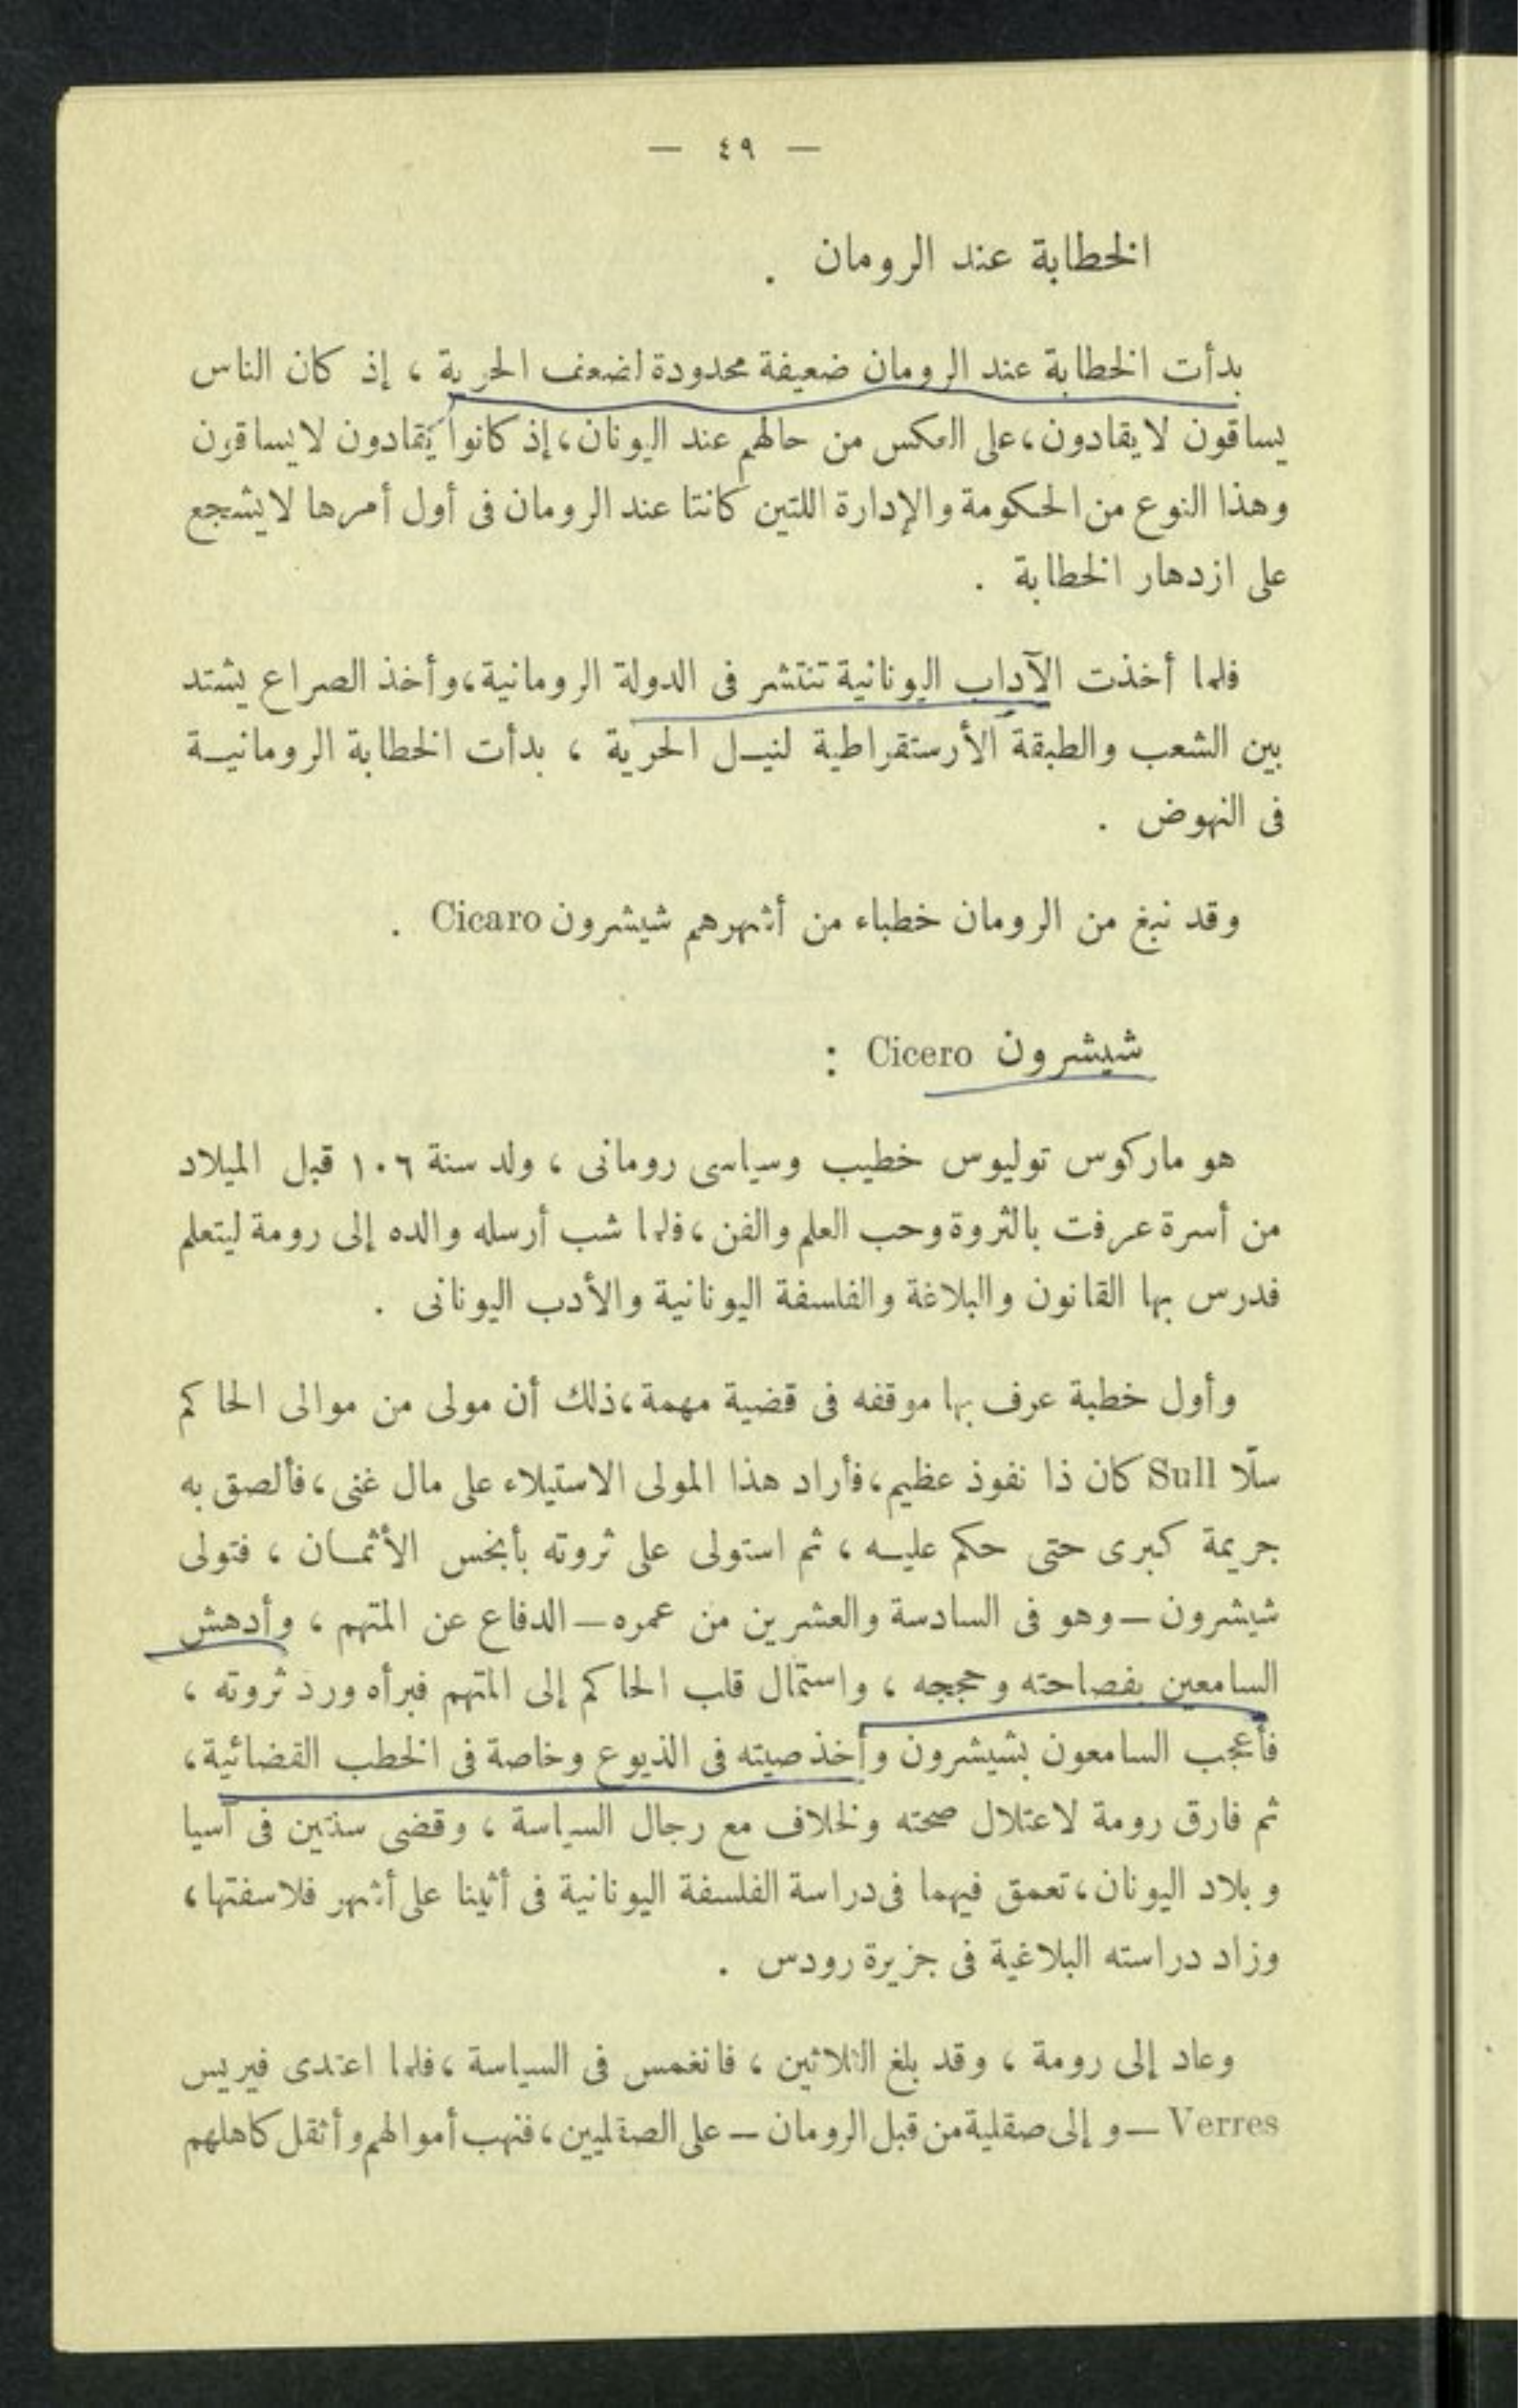 — ٤٩ —
الخطابة عند الرومان .
بدأت الخطابة عند الرومان ضعيفة محدودة لضعف الحرية ، إذ كان الناس
يساقون لا يقادون ، على العكس من حالهم عند اليونان ، إذ كانوا يقادون لا يساقون
وهذا النوع من الحكومة والإدارة اللتين كانتا عند الرومان فى أول أمرها لا يشجع
على ازدهار الخطابة .
فلما أخذت الآداب اليونانية تنتشر فى الدولة الرومانية ، وأخذ الصراع يشتد
بين الشعب والطبقة الأرستقراطية لنيـل الحرية ، بدأت الخطابة الرومانيـة
فى النهوض .
وقد نبغ من الرومان خطباء من أشهرهم شيشرون Cicaro .
شيشرون Cicero :
هو ماركوس توليوس خطيب وسياسى رومانى ، ولد سنة ١٠٦ قبل الميلاد
من أسرة عرفت بالثروة وحب العلم والفن ، فلما شب أرسله والده إلى رومة ليتعلم
فدرس بها القانون والبلاغة والفلسفة اليونانية والأدب اليونانى .
وأول خطبة عرف بها موقفه فى قضية مهمة ، ذلك أن مولى من موالى الحاكم
سلّا Sull كان ذا نفوذ عظيم ، فأراد هذا المولى الاستيلاء على مال غنى ، فألصق به
جريمة كبرى حتى حكم عليـه ، ثم استولى على ثروته بأبخس الأثمـان ، فتولى
شيشرون — وهو فى السادسة والعشرين من عمره — الدفاع عن المتهم ، وأدهش
السامعين بفصاحته وحججه ، واستمال قلب الحاكم إلى المتهم فبرأه ورد ثروته ،
فأعجب السامعون بشيشرون وأخذ صيته فى الذيوع وخاصة فى الخطب القضائية ،
ثم فارق رومة لاعتلال صحته ولخلاف مع رجال السياسة ، وقضى سنتين فى آسيا
وبلاد اليونان ، تعمق فيهما فى دراسة الفلسفة اليونانية فى أثينا على أشهر فلاسفتها ،
وزاد دراسته البلاغية فى جزيرة رودس .
وعاد إلى رومة ، وقد بلغ الثلاثين ، فانغمس فى السياسة ، فلما اعتدى فيريس
Verres — و إلى صقلية من قبل الرومان — على الصقليين ، فنهب أموالهم وأثقل كاهلهم